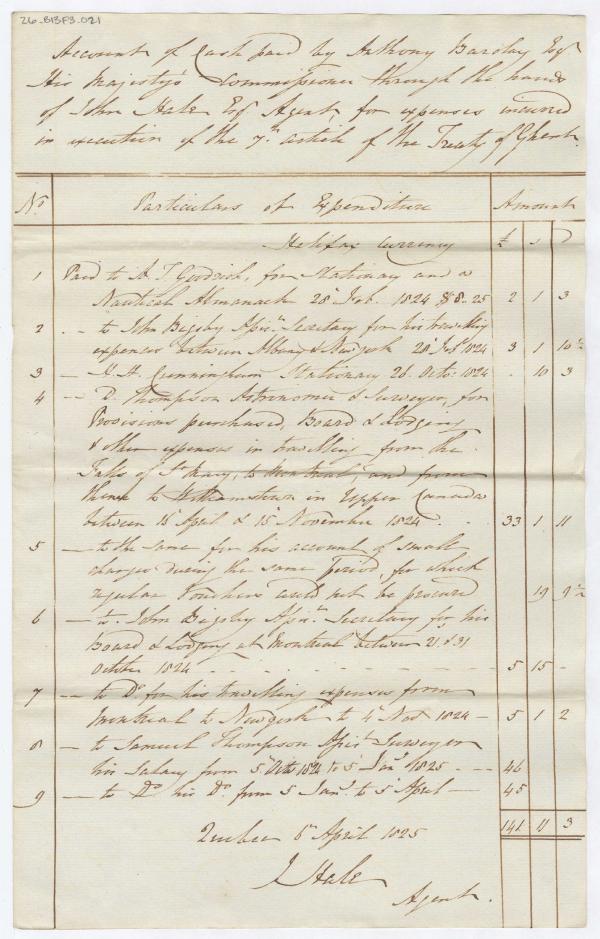 26-B13F3-021
Account of Cash paid by Anthony Barclay Esqr
His Majesty's Commissioner through the hands
of John Hale Esqr Agent, for expenses incurred
in execution of the 7th article of the Treaty of Ghent.
No Particulars of Expenditure Amount
Halifax Currency £ s D
1 Paid to A. T. Goodrich, for Stationary and a
Nautical Almanack 28 Feb. 1824 $8.25 2 1 3
2 .-- to John Bigsby Assist Secretary for his travelling
expenses between Albany & Newyork 20 Feby 1824 3 1 10½
3 -- H. Cunningham Stationary 26 Octo: 1824 . 10 3
4 -- D. Thompson Astronomer & Surveyor, for
Provisions purchased, Board & Lodging
& other expenses in travelling from the
Falls of St Mary, to Montreal, and from
thence to Williamstown in Upper Canada
between 15 April & 15 November 1824 . . 33 1 11
5 -- to the same for his account of small
charges during the same period, for which
regular Vouchers could not be procured 19 9½
6 -- to John Bigsby Assist Secretary for his
Board & Lodging at Montreal between 21 & 31
October 1824 - - - - - - - - 5 15 -
7 -- to Do for his travelling expenses from
Montreal to Newyork to 4 Nov 1824 - 5 1 2
8 -- to Samuel Thompson Assist Surveyor
his Salary from 5 Octo 1824 to 5 Jany 1825 - -- 46
9 -- to Do his Do from 5 Jany to 5 April -- 45
141 11 3
Quebec 6th April 1825
J Hale
Agent.